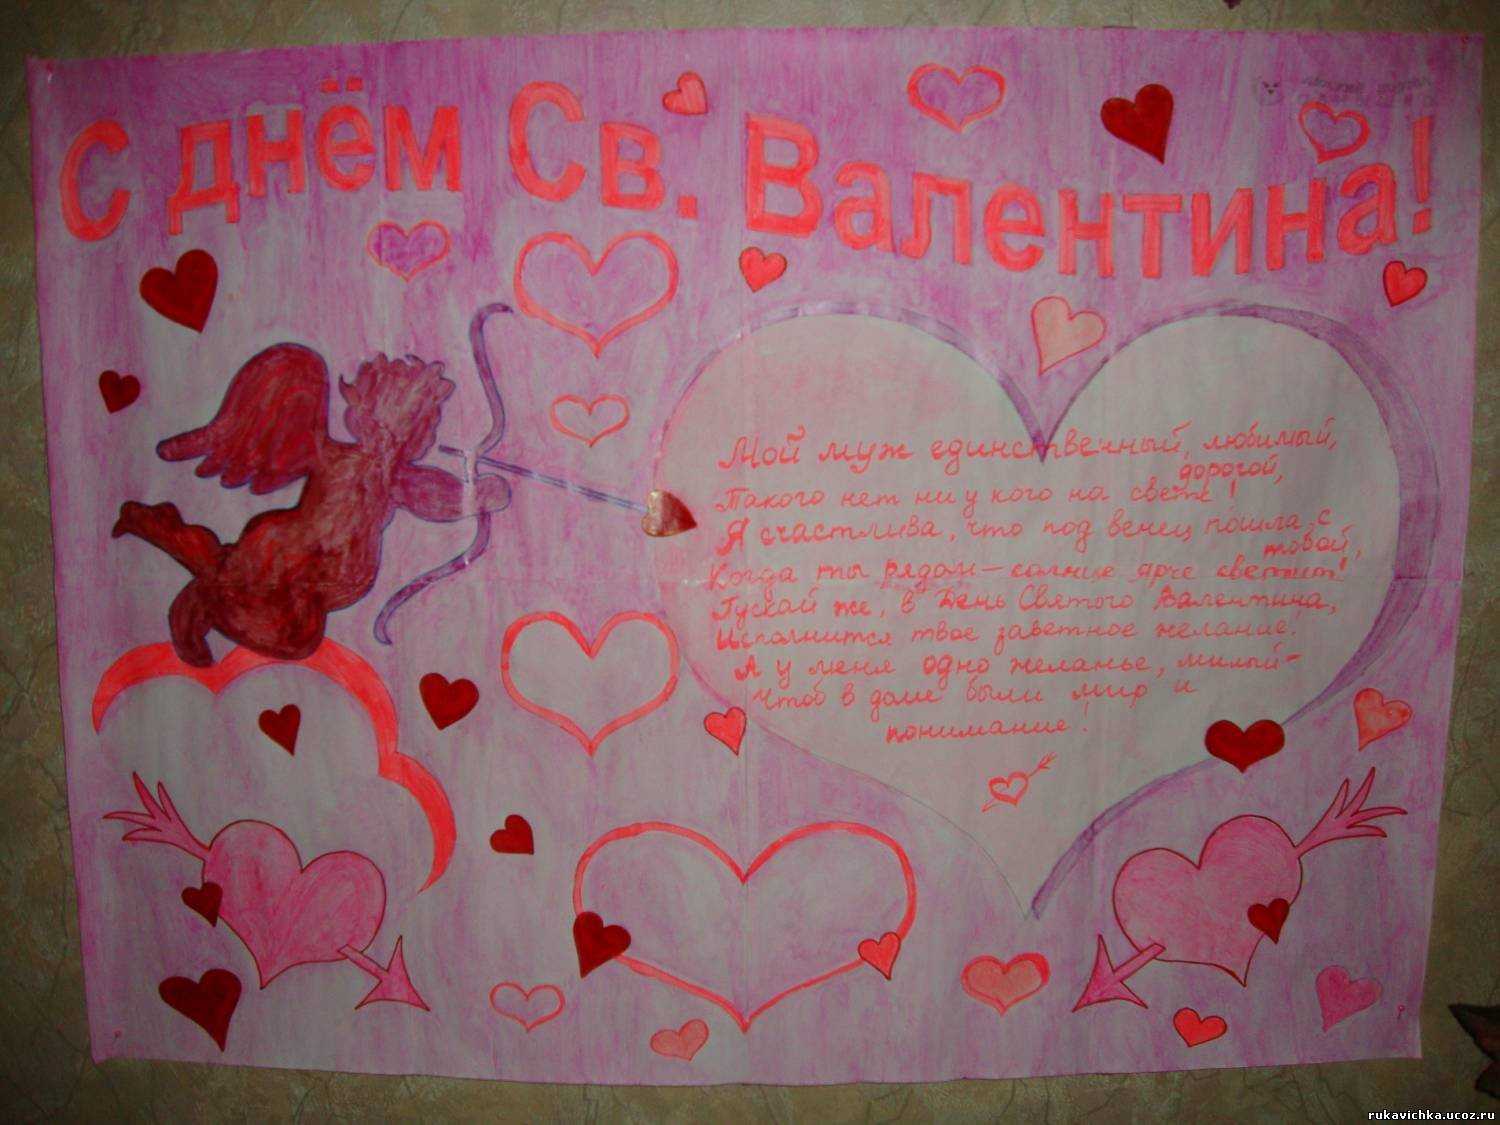 С днём Св. Валентина!
Мой муж единственный, любимый,
дорогой,
Такого нет ни у кого на свете!
Я счастлива, что под венец пошла с
тобой,
Когда ты рядом – солнце ярче светит!
Пускай же, в День Святого Валентина,
Исполнится твое заветное желание.
А у меня одно желанье, милый–
Чтоб в доме были мир и
понимание!
rukavichka.ucoz.ru